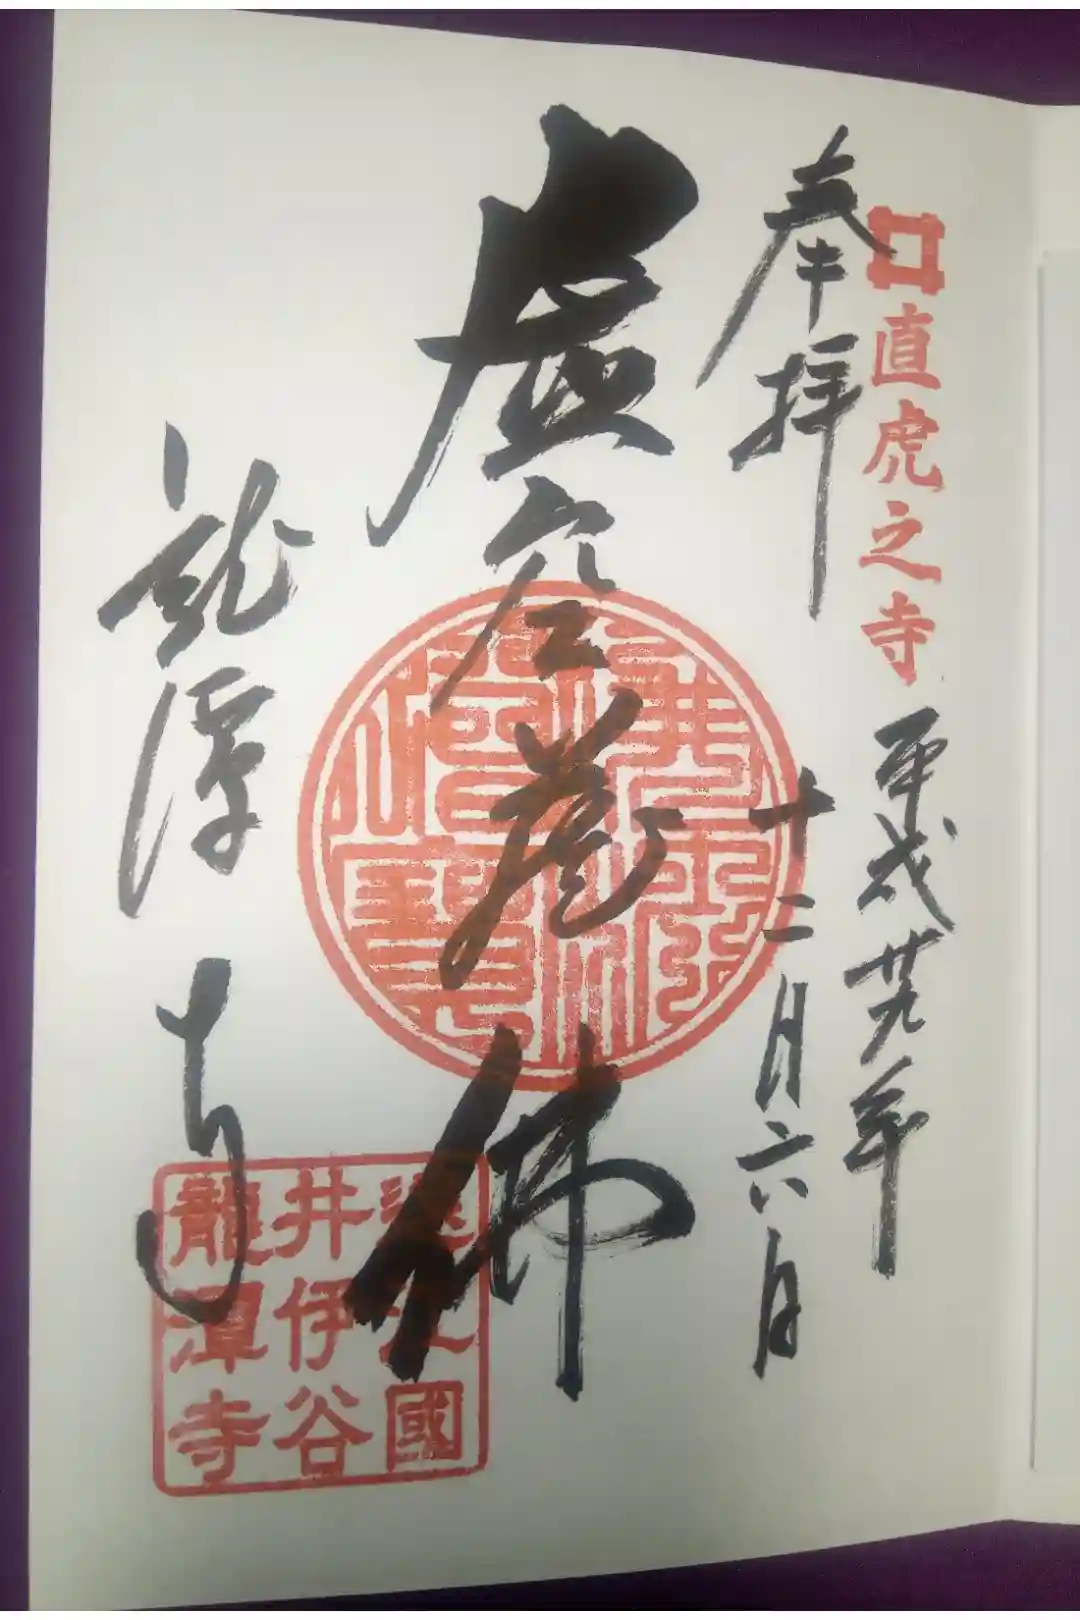 直虎之寺
奉拝
平成廿九年
十二月六日
虚空蔵佛
龍潭寺
遠江國
井伊谷
龍潭寺
佛法僧寶